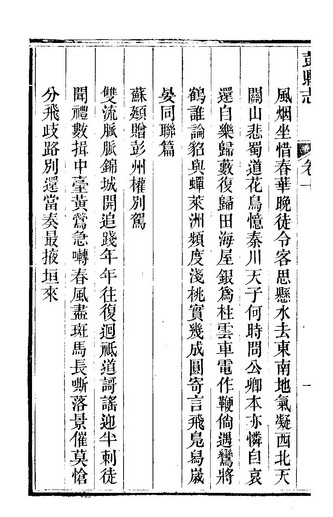 彭縣志
卷十
風烟坐惜春華晚徒令客思懸水去東南地氣凝西北天
關山悲蜀道花鳥憶秦川天子何時問公卿本亦憐自哀
還自樂歸藪復歸田海屋銀為柱雲車電作鞭倘遇鸞將
鶴誰論貂與蟬萊洲頻度淺桃實幾成圓寄言飛鳧舄歲
晏同聯篇
蘇頲贈彭州權別駕
雙流脈脈錦城開追踐年年往復迴祗道謌謠迎半刺徒
聞禮數揖中臺黃鶯急囀春風盡斑馬長嘶落景催莫愴
分飛歧路別還當奏最掖垣來